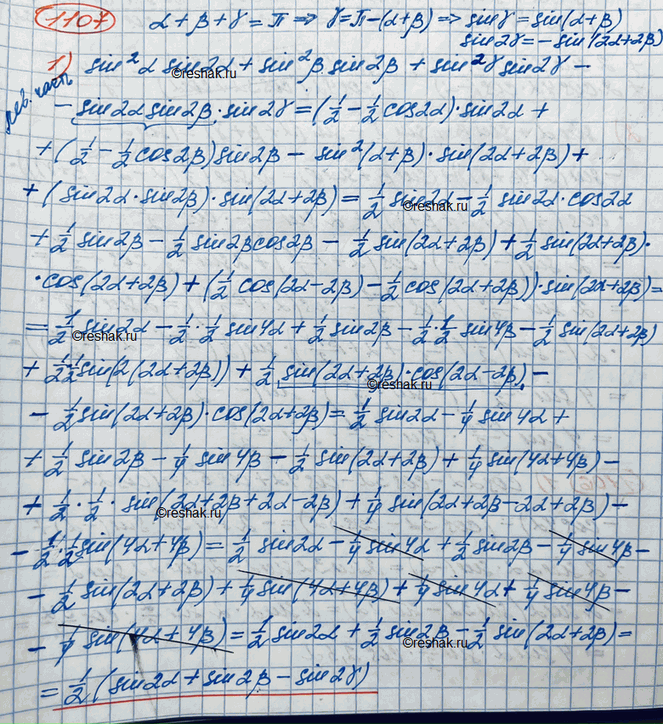 1107 α + β + γ = π ⇒ γ = π-(α+β) ⇒ sinγ = sin(α+β)
sin2γ = - sin(2α+2β)
1) sin²α sin2α + sin²β sin2β + sin²γ sin2γ -
лев. часть
- sin2α sin2β · sin2γ = (1/2 - 1/2 cos2α) · sin2α +
+ (1/2 - 1/2 cos2β) sin2β - sin²(α+β) · sin(2α+2β) +
+ (sin2α · sin2β) · sin(2α+2β) = 1/2 sin2α - 1/2 sin2α · cos2α
©reshak.ru
+ 1/2 sin2β - 1/2 sin2β cos2β - 1/2 sin(2α+2β) + 1/2 sin(2α+2β) ·
· cos(2α+2β) + (1/2 cos(2α-2β) - 1/2 cos(2α+2β)) · sin(2α+2β) =
= 1/2 sin2α - 1/2 · 1/2 sin4α + 1/2 sin2β - 1/2 · 1/2 sin4β - 1/2 sin(2α+2β)
©reshak.ru
+ 1/2 1/2 sin(2(2α+2β)) + 1/2 sin(2α+2β) · cos(2α-2β) -
©reshak.ru
- 1/2 sin(2α+2β) · cos(2α+2β) = 1/2 sin2α - 1/4 sin4α +
+ 1/2 sin2β - 1/4 sin4β - 1/2 sin(2α+2β) + 1/4 sin(4α+4β) -
+ 1/2 · 1/2 · sin(2α+2β+2α-2β) + 1/4 sin(2α+2β-2α+2β) -
©reshak.ru
- 1/2 · 1/2 sin(4α+4β) = 1/2 sin2α - 1/4 sin4α + 1/2 sin2β - 1/4 sin4β -
- 1/2 sin(2α+2β) + 1/4 sin(4α+4β) + 1/4 sin4α + 1/4 sin4β -
- 1/4 sin(4α+4β) = 1/2 sin2α + 1/2 sin2β - 1/2 sin(2α+2β) =
©reshak.ru
= 1/2 (sin2α + sin2β - sin2γ)
©reshak.ru